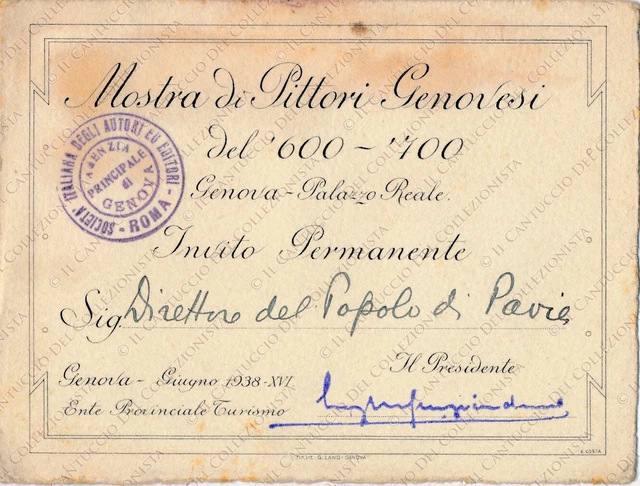 Mostra di Pittori Genovesi
del '600 - '700
Genova - Palazzo Reale.
SOCIETA' ITALIANA DEGLI AUTORI ED EDITORI - ROMA -
AGENZIA PRINCIPALE di GENOVA
Invito Permanente
Sig. Direttore del Popolo di Pavia
Il Presidente
Genova - Giugno 1938 - XVI
Ente Provinciale Turismo
G. LANG - GENOVA
© IL CANTUCCIO DEL COLLEZIONISTA